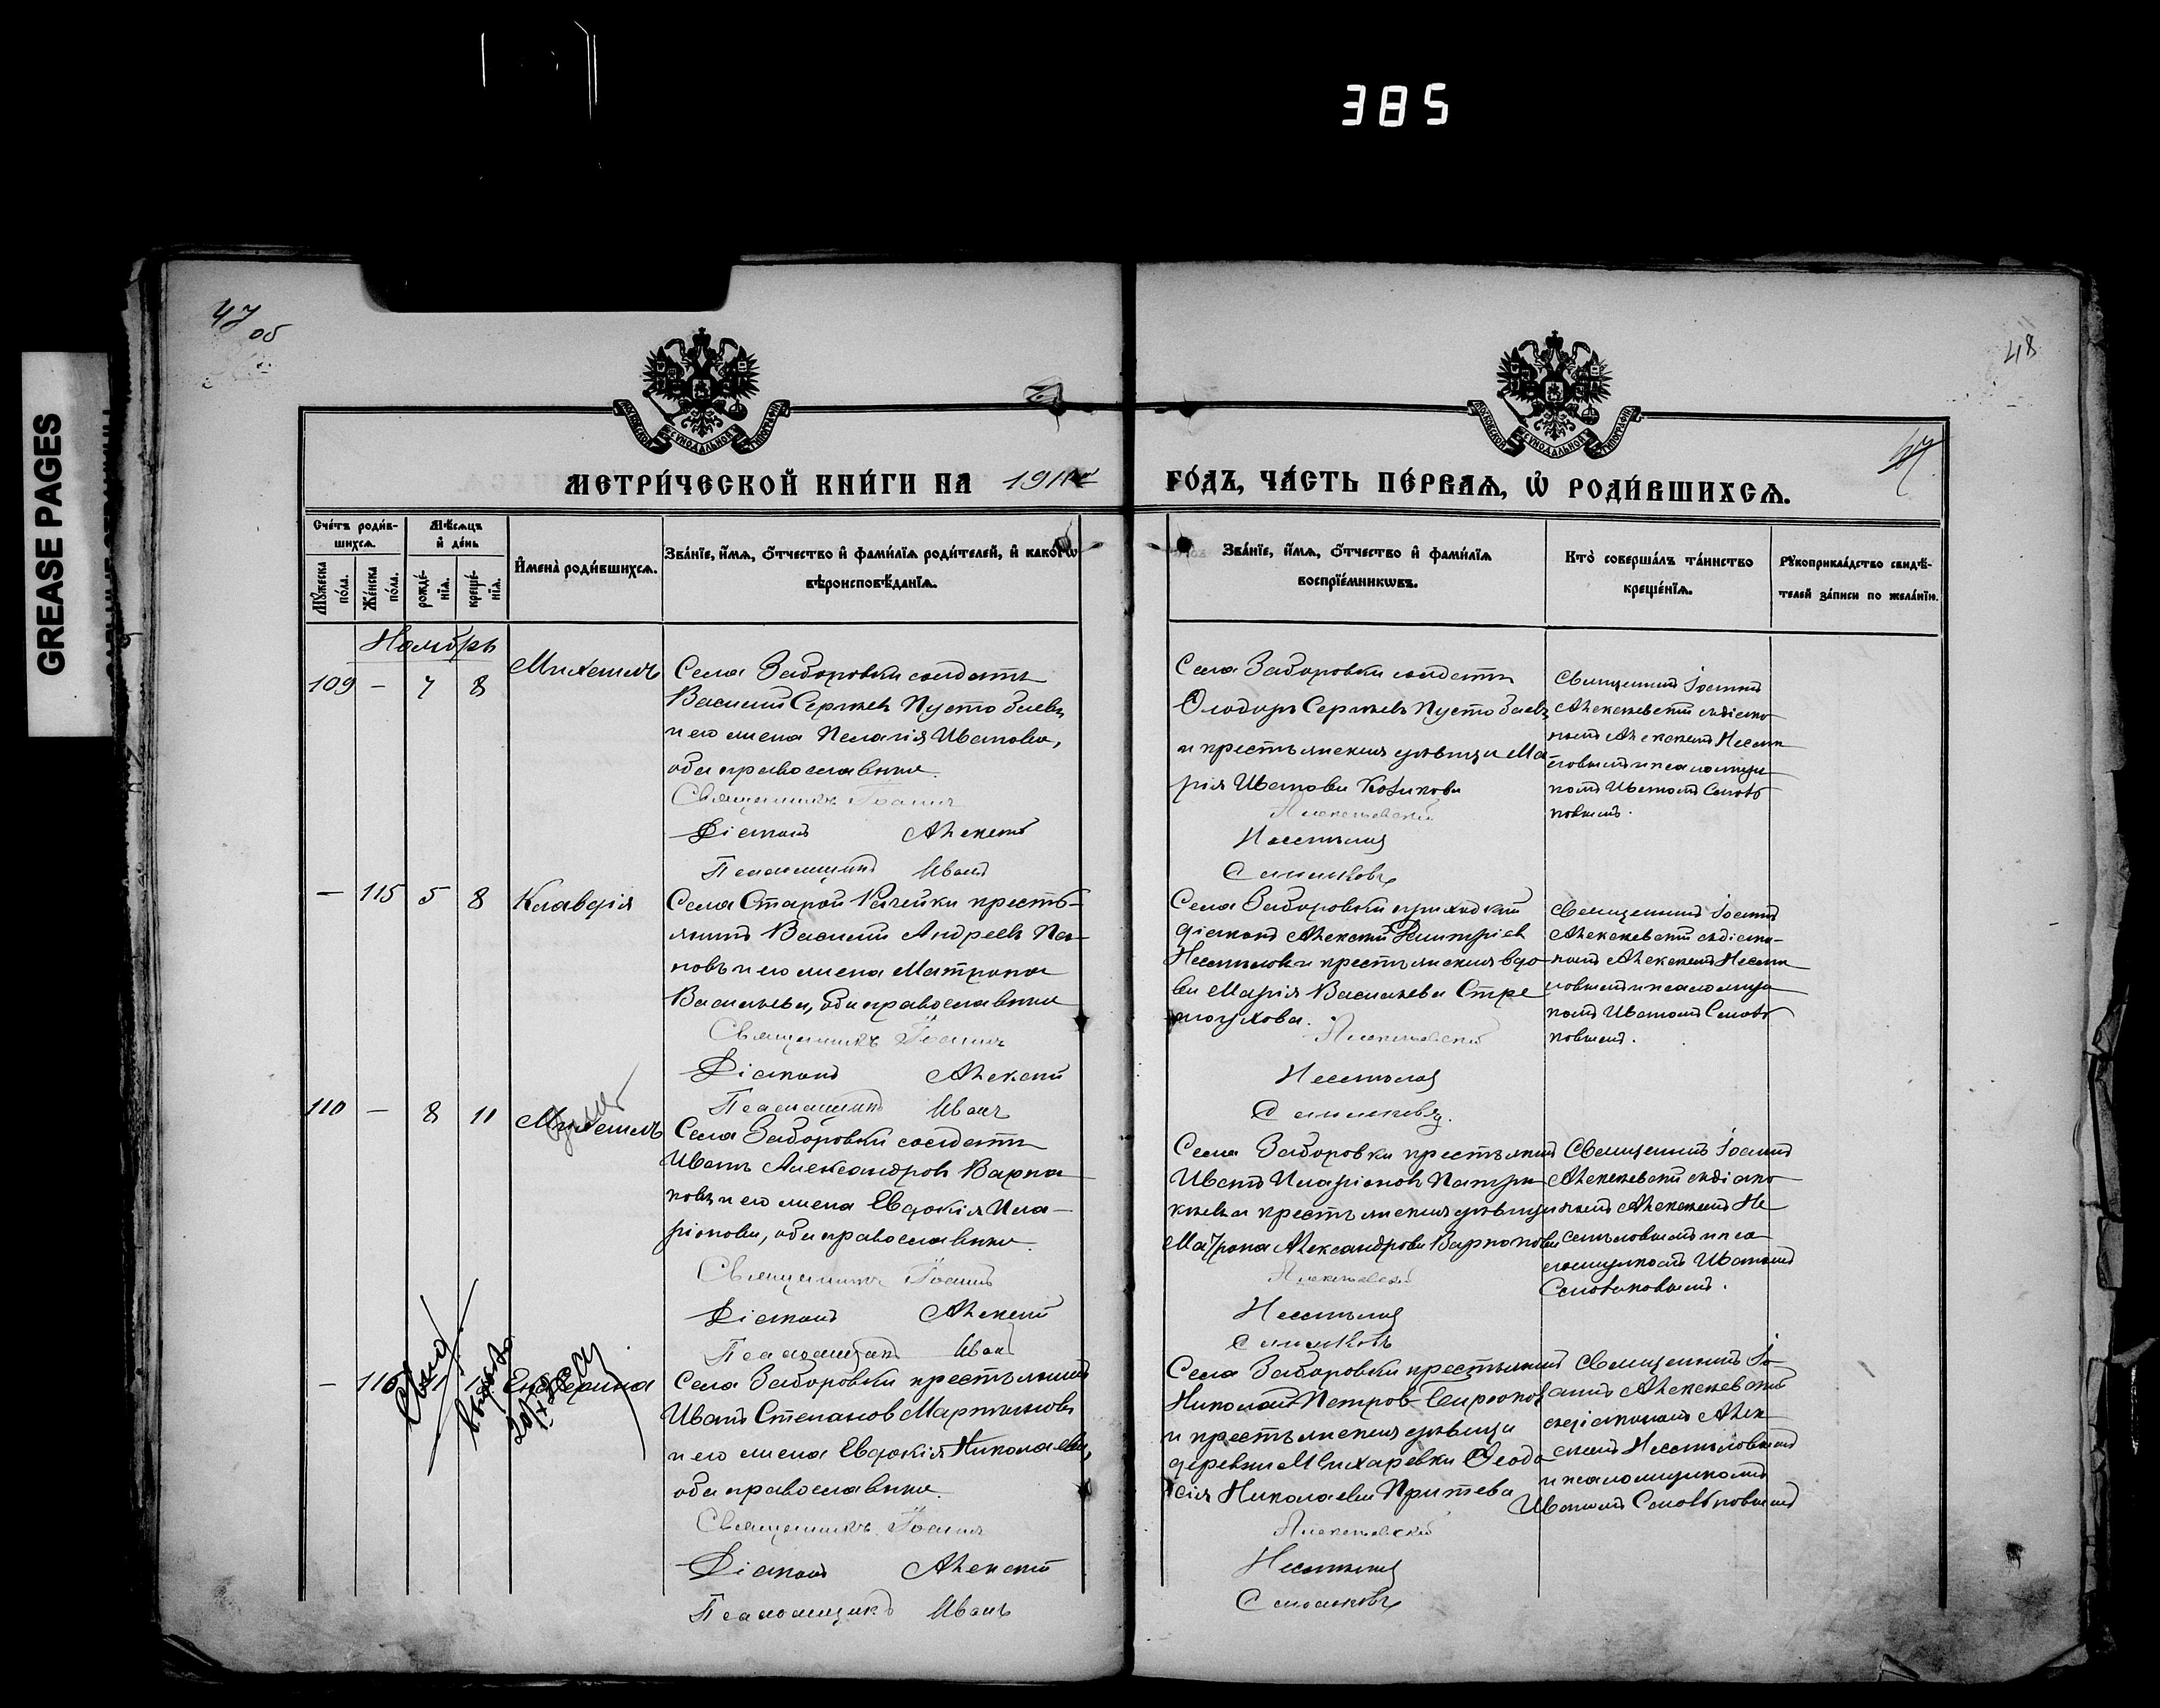 385
GREASE PAGES
47 об
48
47
МОСКОВСКОЙ СѴНОДАЛЬНОЙ ТИПОГРАФІИ
МОСКОВСКОЙ СѴНОДАЛЬНОЙ ТИПОГРАФІИ
МЕТРИ́ЧЕСКОЙ КНИ́ГИ НА 1911й
ГО́ДЪ, ЧА́СТЬ ПЕ́РВАѦ, Ѡ҆ РОДИ́ВШИХСѦ.
Сче́тъ роди́в-
шихсѧ.
Мꙋ́жеска по́ла.
Же́нска по́ла.
Мѣ́сѧцъ
и҆ де́нь
рожде́-
нїѧ.
креще́-
нїѧ.
И҆мена̀ роди́вшихсѧ.
Зва́нїе, и҆́мѧ, ѻ҆́тчество и҆ фами́лїѧ роди́телей, и҆ како́гѡ
вѣроисповѣ́данїѧ.
Зва́нїе, и҆́мѧ, ѻ҆́тчество и҆ фами́лїѧ
воспрїе́мникѡвъ.
Кто̀ соверша́лъ та́инство
креще́нїѧ.
Рꙋкоприкла́дство свидѣ́-
телей за́писи по жела́нїю.
Ноябрь
109 — 7 8 Михаилъ
Села Заборовки солдатъ
Василий Сергѣевъ Пустобаевъ
и его жена Пелагія Иванова,
оба православные.
Священникъ Іоаннъ
Діаконъ Алексѣй
Псаломщикъ Иванъ
Села Заборовки солдатъ
Ѳеодоръ Сергѣевъ Пустобаевъ
и крестьянская дѣвица Ма-
рія Иванова
Алексѣевскій
Несмѣловъ
Священникъ Іоаннъ
Алексѣевскій съ діако-
номъ Алексѣемъ Несмѣ-
ловымъ и псаломщи-
комъ Иваномъ
— 115 5 8 Клавдія
Села Старой Рачейки кресть-
янинъ Василій Андреевъ Па-
новъ и его жена Матрона
Васильева, оба православные
Священникъ Іоаннъ
Діаконъ Алексѣй
Псаломщикъ Иванъ
Села Заборовки приходскій
діаконъ Алексѣй Димитріевъ
Несмѣловъ и крестьянская вдо-
ва Марія Васильева Стре
Алексѣевскій
Несмѣловъ
Священникъ Іоаннъ
Алексѣевскій съ діако-
номъ Алексѣемъ Несмѣ-
ловымъ и псаломщи-
комъ Иваномъ
110 — 8 11 Михаилъ
Села Заборовки солдатъ
Иванъ Александровъ Варна-
ковъ и его жена Евдокія Ила-
ріонова, оба православные.
Священникъ Іоаннъ
Діаконъ Алексѣй
Псаломщикъ Иванъ
Села Заборовки крестьянинъ
Иванъ Иларіоновъ
и крестьянская дѣвица
Матрона Александрова
Алексѣевскій
Несмѣловъ
Священникъ Іоаннъ
Алексѣевскій съ діако-
номъ Алексѣемъ Не-
смѣловымъ и пса-
ломщикомъ Иваномъ
— 116 Екатерина
Села Заборовки крестьянинъ
Иванъ Степановъ Мартыновъ
и его жена Евдокія Николаева,
оба православные.
Священникъ Іоаннъ
Діаконъ Алексѣй
Псаломщикъ Иванъ
Села Заборовки крестьянинъ
Николай Петровъ
и крестьянская дѣвица
деревни Ѳеодо
сія Николаева
Алексѣевскій
Несмѣловъ
Священникъ Іо-
аннъ Алексѣевскій
съ діакономъ Алек-
сѣемъ Несмѣловымъ
и псаломщикомъ
Иваномъ